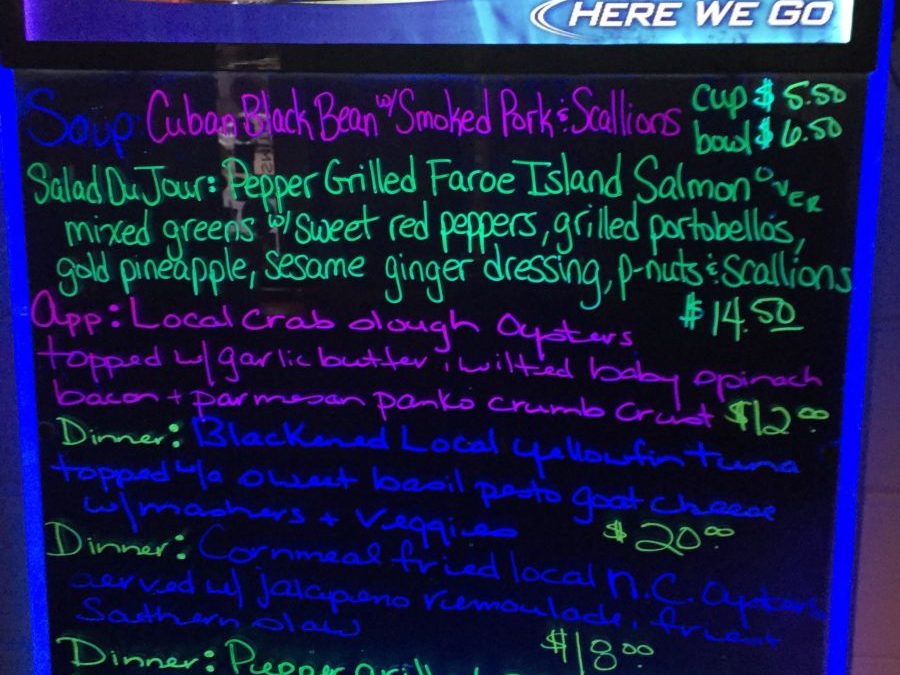 HERE WE GO
Soup: Cuban Black Bean w/ Smoked Pork & Scallions cup $ 5.50
bowl $ 6.50
Salad Du Jour: Pepper Grilled Faroe Island Salmon OVER
mixed greens w/ sweet red peppers, grilled portobello's,
gold pineapple, sesame ginger dressing, p-nuts & scallions
$14.50
App: Local Crab Slough Oysters
topped w/ garlic butter, wilted baby spinach
bacon + parmesan panko crumb crust $12.00
Dinner: Blackened Local yellowfin tuna
topped w/a sweet basil pesto goat cheese
w/ mashers + veggies $20.00
Dinner: Cornmeal fried local N.C. Oysters
served w/ jalapeno remoulade, fries +
Southern slaw
$18.00
Dinner: Pepper